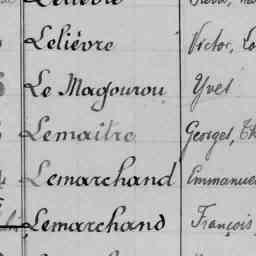 Lelièvre Victor,
Le Magourou Yves
Lemaître Georges,
Lemarchand Emmanuel
Lemarchand François